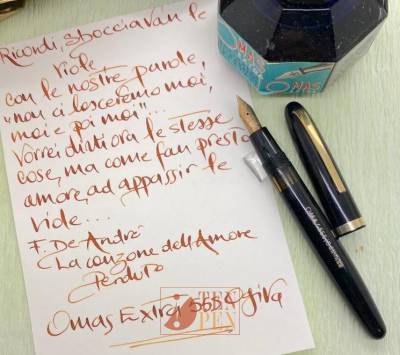 Ricordi, sbocciavan le
viole
con le nostre parole
"non ci lasceremo mai,
mai e poi mai"...
vorrei dirti ora le stesse
cose, ma come fan presto
amore, ad appassir le
viole...
F. De André
La canzone dell'Amore
Perduto
Omas Extra 555 Ogiva
OMAS
OMAS
TEN
PEN